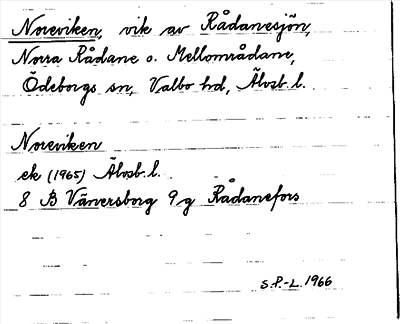 Noreviken, vik av Rådanesjön,
Norra Rådane o. Mellområdane,
Ödeborgs sn, Valbo hd, Älvsb. l.
Noreviken
ek (1965) Älvsb. l.
8 B Vänersborg 9 g Rådanefors
S.P.-L. 1966